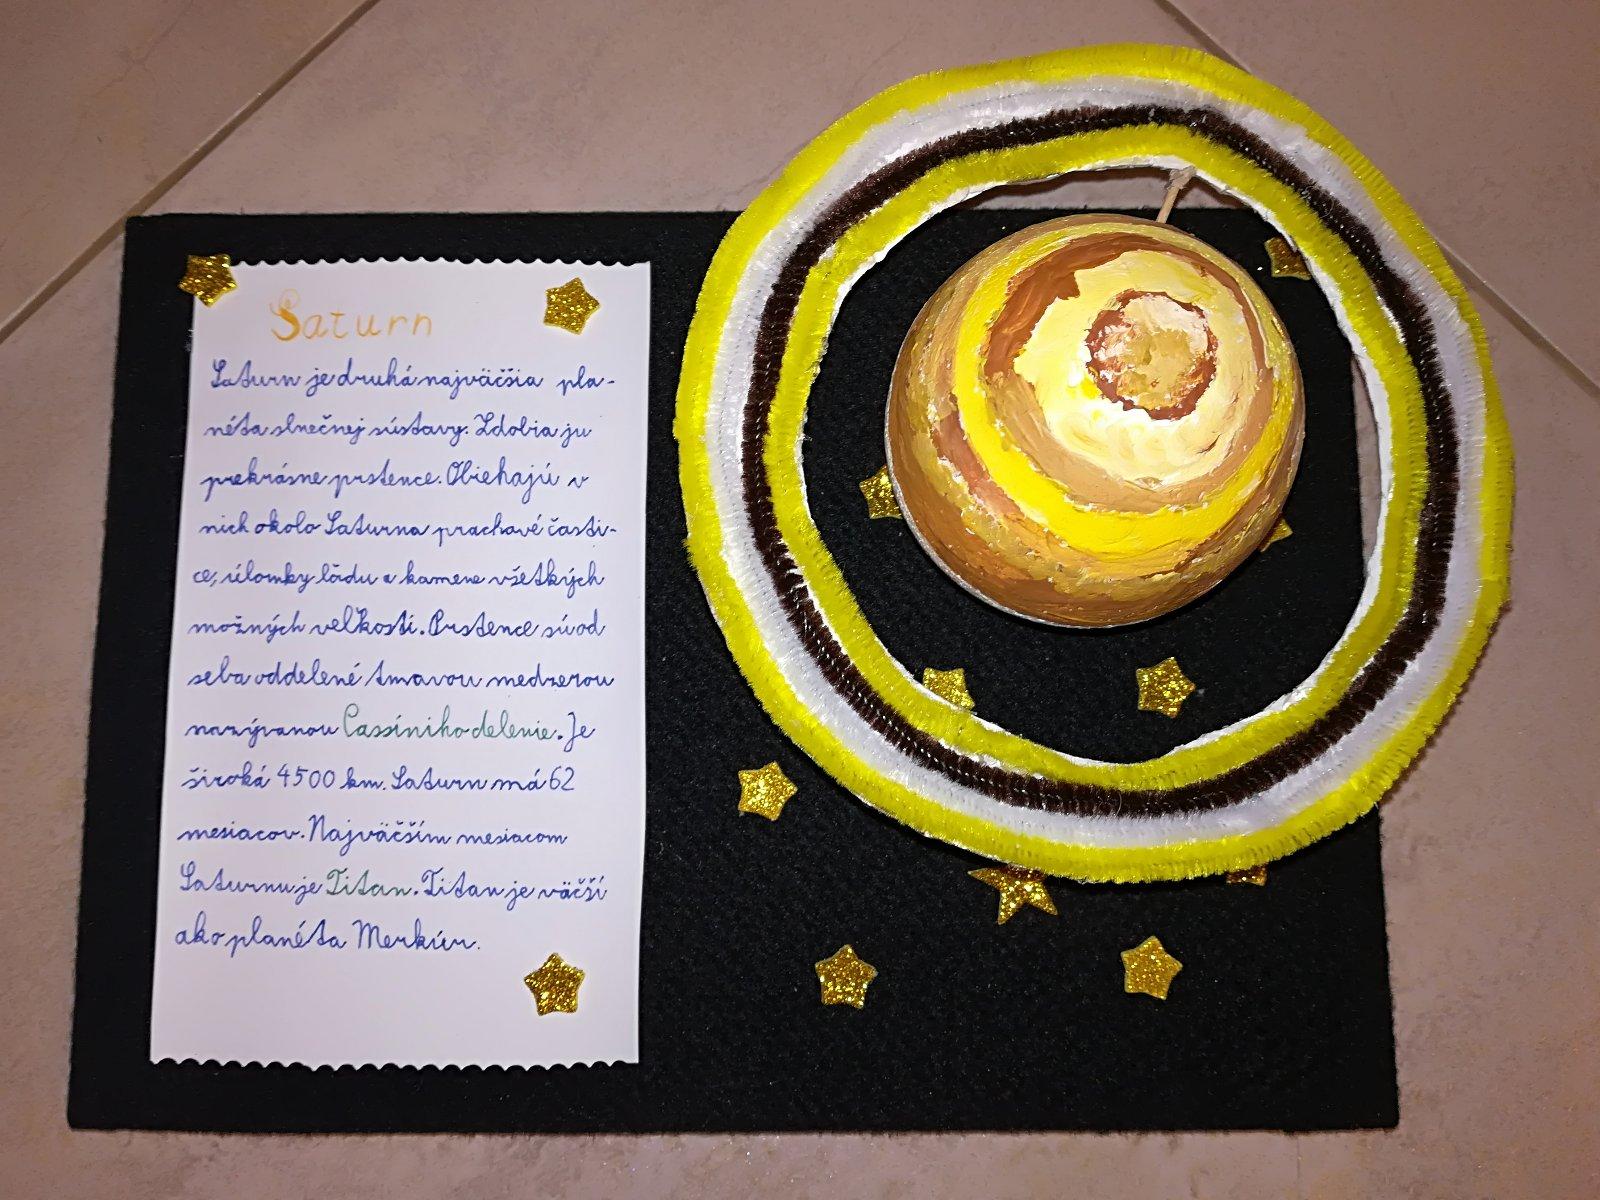 Saturn
Saturn je druhá najväčšia pla-
néta slnečnej sústavy. Zdobia ju
prekrásne prstence. Obiehajú v
nich okolo Saturna prachavé časti-
ce, úlomky ľadu a kamene všetkých
možných veľkosti. Prstence sú od
seba oddelené tmavou medzerou
nazývanou Cassíniho delenie. Je
široká 4500 km. Saturn má 62
mesiacov. Najväčším mesiacom
Saturnu je Titan. Titan je väčší
ako planéta Merkúr.